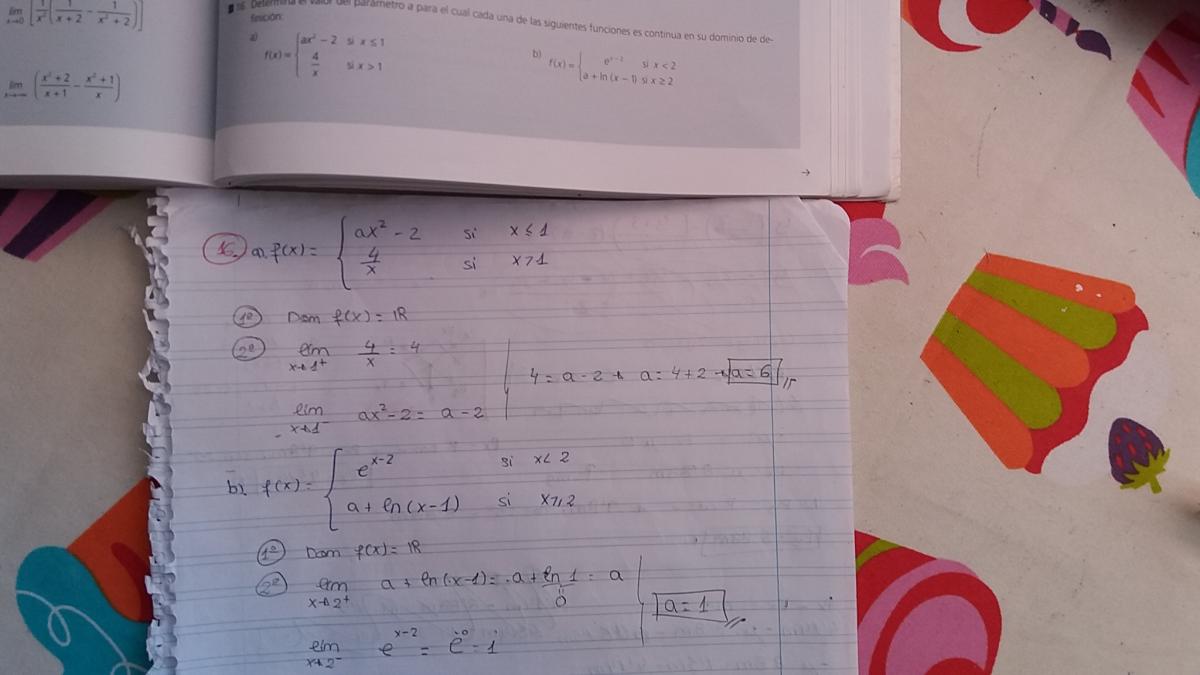 lim x→0 [1/x² (1/(x+2) - 1/(x²+2))]
lim x→-∞ ((x²+2)/(x+1) - (x²+1)/x)
16 Determina el valor del parámetro a para el cual cada una de las siguientes funciones es continua en su dominio de de-
finición:
a)
f(x) = { ax² - 2 si x ≤ 1
4/x si x > 1
b)
f(x) = { e^(x-2) si x < 2
a + ln (x - 1) si x ≥ 2
→
16. a) f(x) = { ax² - 2 si x ≤ 1
4/x si x > 1
1º Dom f(x) = ℝ
2º lim x→1⁺ 4/x = 4
4 = a - 2 → a = 4 + 2 → a = 6 //
lim x→1⁻ ax² - 2 = a - 2
b) f(x) = { e^(x-2) si x < 2
a + ln (x - 1) si x ≥ 2
1º Dom f(x) = ℝ
2º lim x→2⁺ a + ln (x - 1) = a + ln 1 = a
"
0
a = 1 //
lim x→2⁻ e^(x-2) = e⁰ = 1